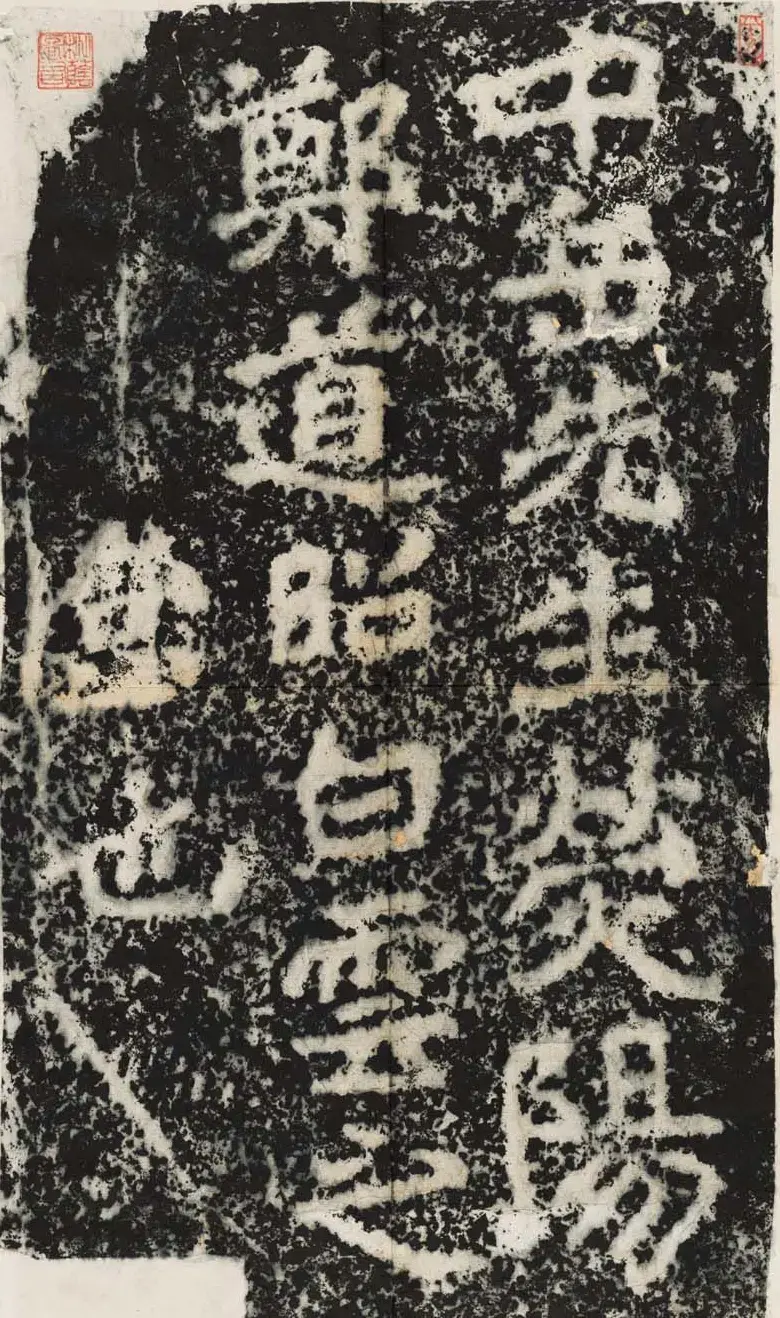 中岳先生熒陽
鄭道昭白雲之
堂也